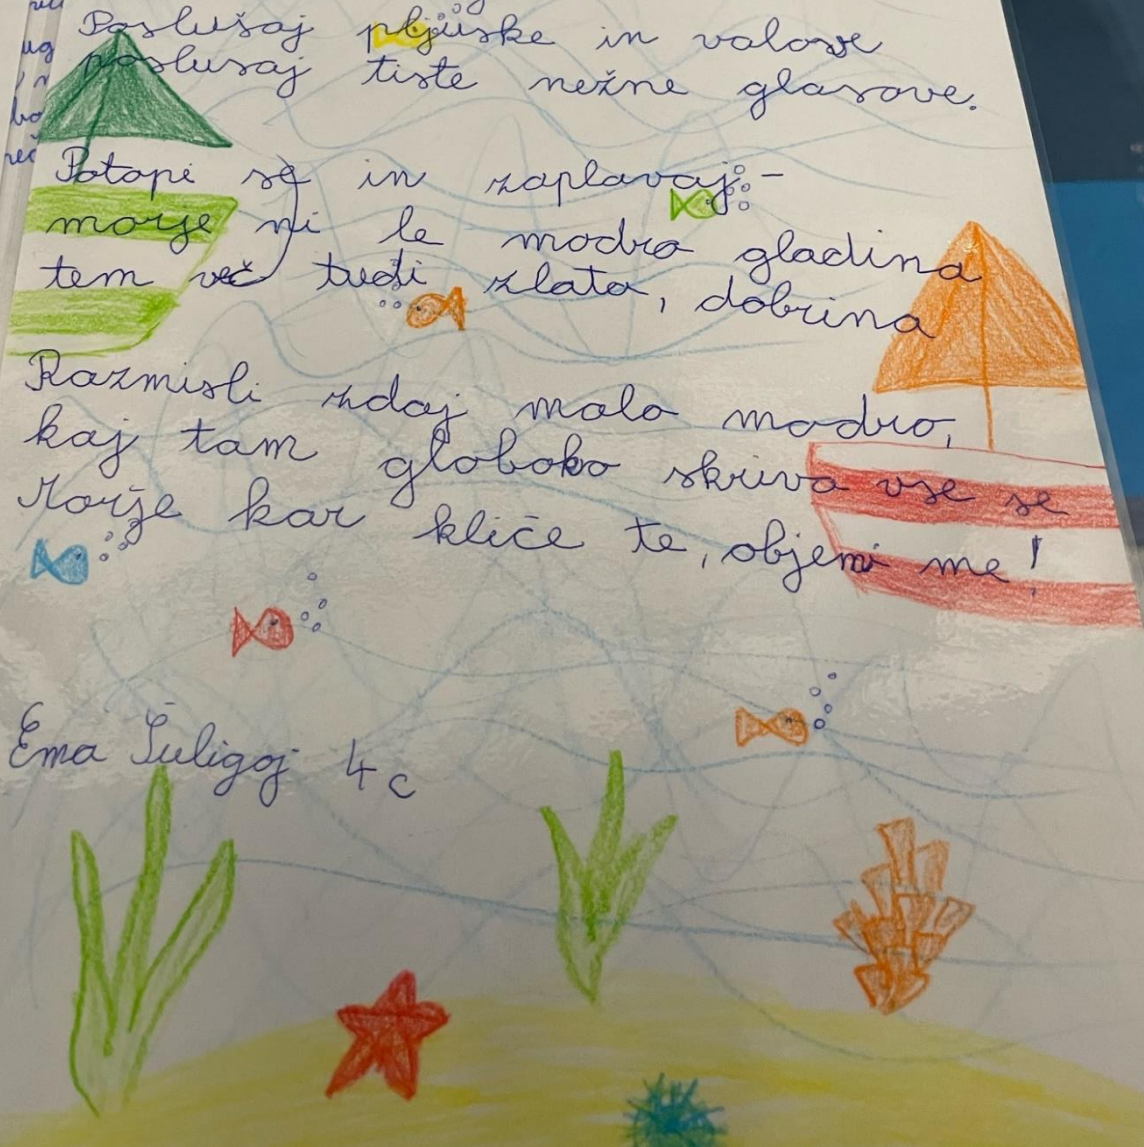 Poslušaj pljuske in valove
poslušaj tiste nežne glasove.
Potopi se in zaplavaj -
morje ni le modra gladina
tem več tudi zlata, dobrina
Razmisli zdaj malo modro,
kaj tam globoko skriva vse se
Morje kar kliče te, objemi me!
Ema Šuligoj 4c